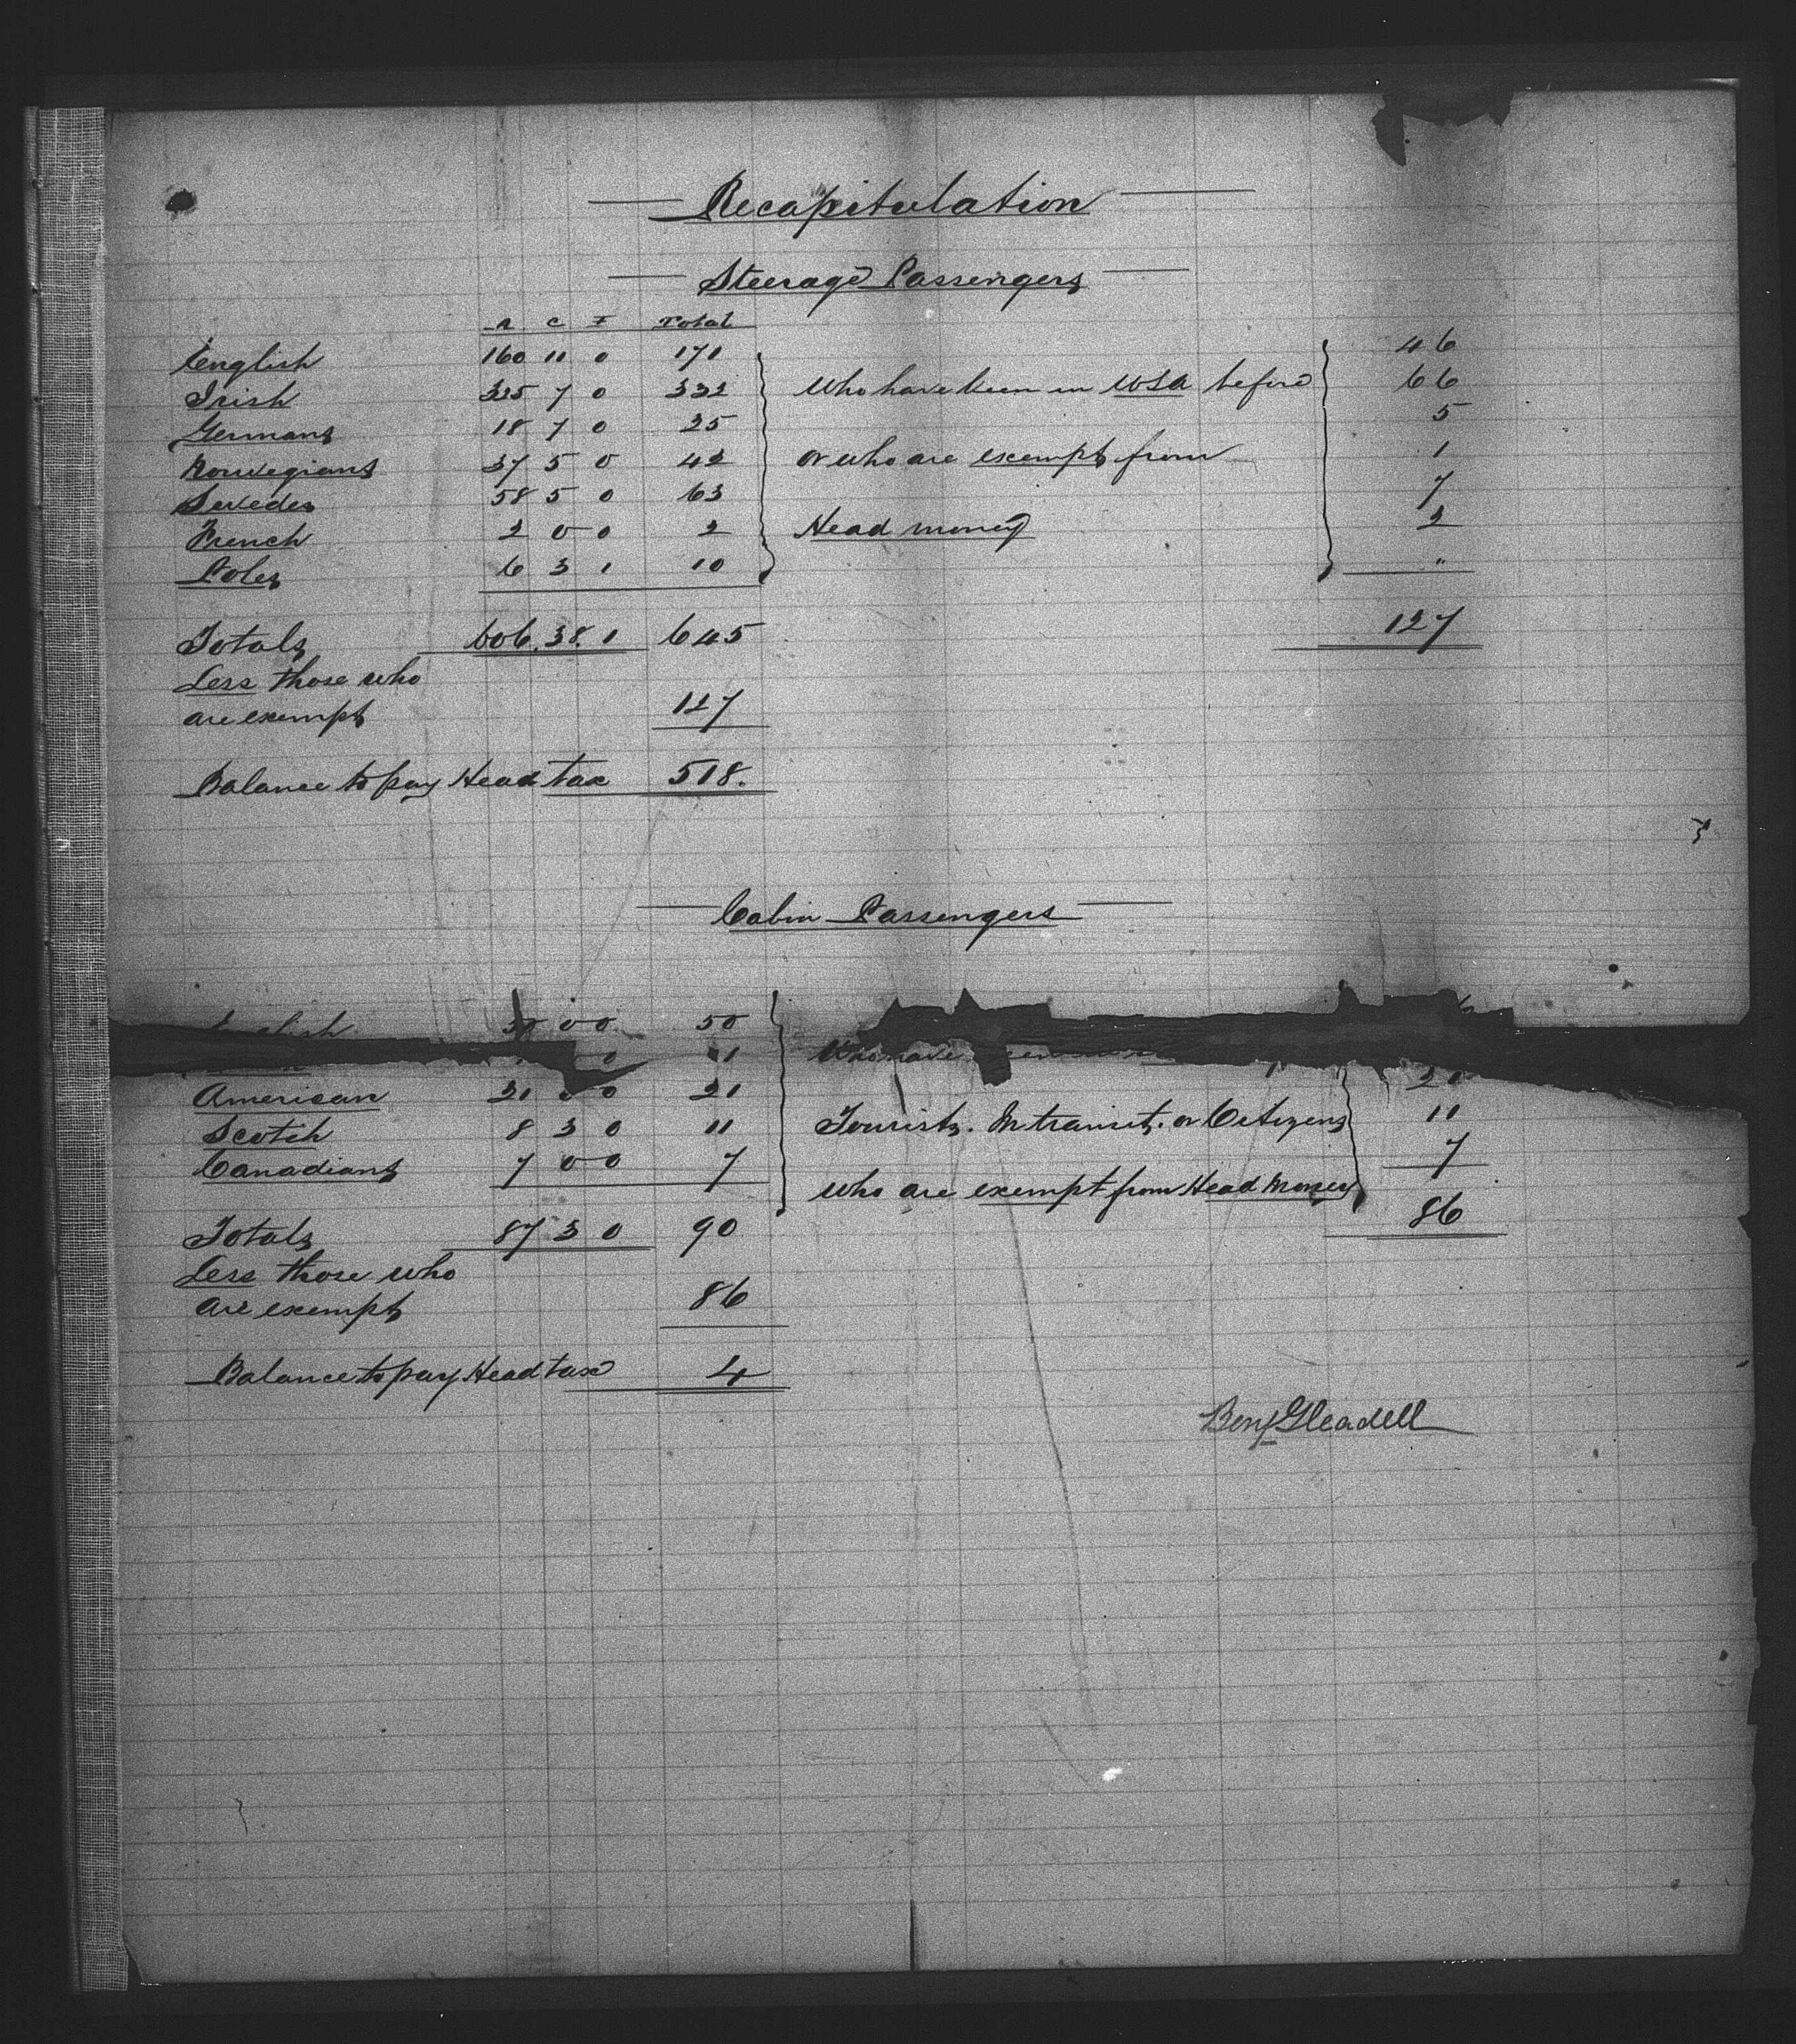 Recapitulation
Steerage Passengers
A C I Total
English 160 11 0 171 46
Irish 325 7 0 332 Who have been in USA before 66
Germans 18 7 0 25 5
Norwegians 37 5 0 42 or who are exempt from 1
Swedes 58 5 0 63 7
French 2 0 0 2 Head money 2
Poles 6 3 1 10 "
Totals 606. 38. 1 645 127
Less those who
are exempt 127
Balance to pay Head tax 518.
Cabin Passengers
English 50 0 0 50
0 1 Who have been
American 21 0 0 21 21
Scotch 8 3 0 11 Tourists. In transit. or Citizens 11
Canadians 7 0 0 7 7
who are exempt from Head Money
Totals 87 3 0 90 86
Less those who
are exempt 86
Balance to pay Head tax 4
Benj Gleadell